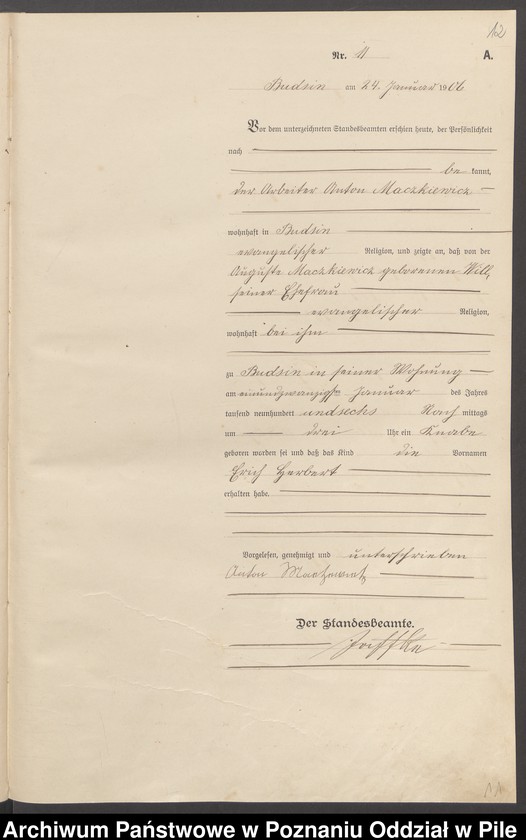 12
Nr. 11 A.
Budsin am 24. Januar 1906
Vor dem unterzeichneten Standesbeamten erschien heute, der Persönlichkeit
nach
be kannt,
der Arbeiter Anton Maczkiewicz
wohnhaft in Budsin
evangelischer Religion, und zeigte an, daß von der
Auguste Maczkiewicz geborenen Will,
seiner Ehefrau
evangelischer Religion,
wohnhaft bei ihm
zu Budsin in seiner Wohnung
am einundzwanzigsten Januar des Jahres
tausend neunhundert und sechs Nach mittags
um drei Uhr ein Knabe
geboren worden sei und daß das Kind die Vornamen
Erich Herbert
erhalten habe.
Vorgelesen, genehmigt und unterschrieben
Anton
Der Standesbeamte.
11
Archiwum Państwowe w Poznaniu Oddział w Pile